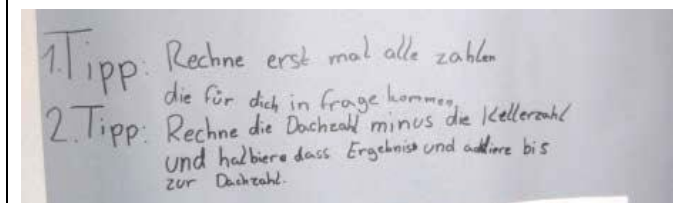 1. Tipp: Rechne erst mal alle zahlen
die für dich in frage kommen.
2. Tipp: Rechne die Dachzahl minus die Kellerzahl
und halbiere dass Ergebniss und addiere bis
zur Dachzahl.